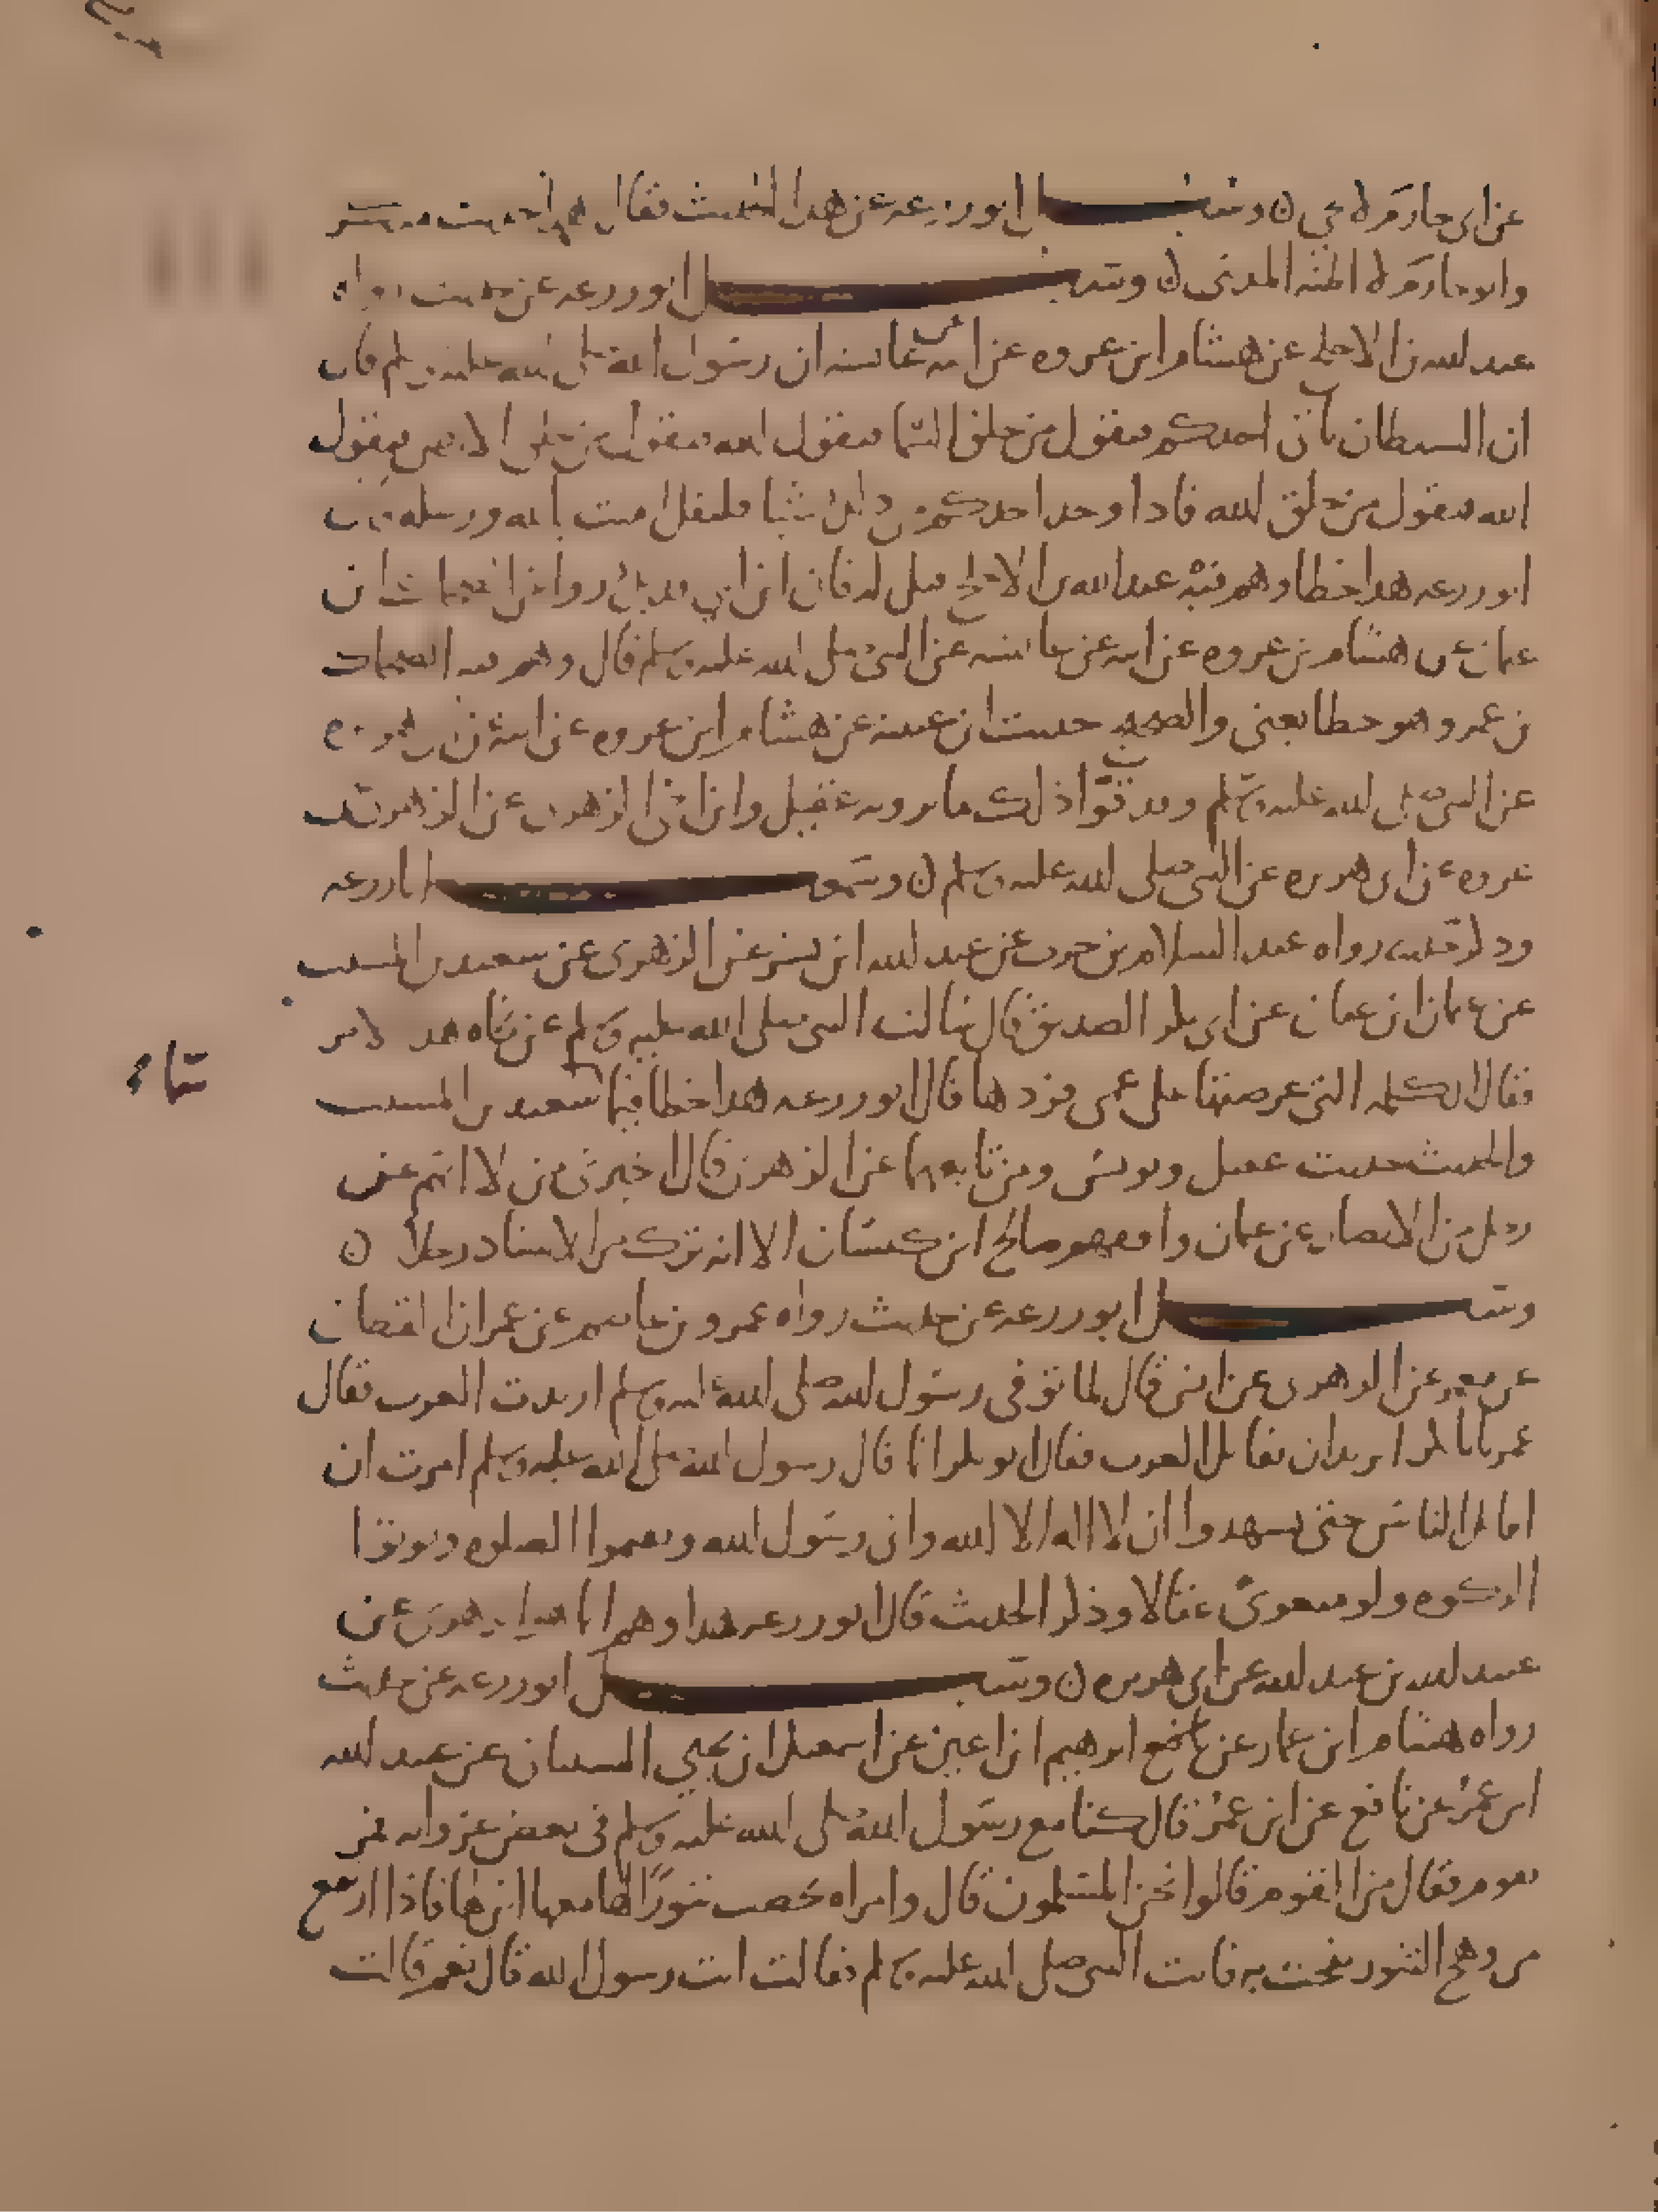 عن ابي حازم ‍ه ن وسئل ابو زرعه عن هذا الحديث فقال
وابو حازم المدني ن وسئل ابو زرعه عن حديث رواه
عبد الله بن الاجلح عن هشام ابن عروه عن ابيه عن عائشه ان رسول الله صلى الله عليه وسلم قال
ان الشيطان ياتي احدكم فيقول من خلق السما فيقول الله فيقول من خلق الارض فيقول
الله فيقول من خلق الله فاذا وجد احدكم من ذلك شيا فليقل امنت بالله ورسله قال
ابو زرعه هذا خطا وهم فيه عبد الله بن الاجلح قيل له فان ابن ابي فديك روا عن الضحاك ابن
عثمان عن هشام بن عروه عن ابيه عن عائشه عن النبي صلى الله عليه وسلم قال وهم فيه الضحاك
بن عمرو هو خطا يعني والصحيح حديث ابن عيينه عن هشام ابن عروه عن ابيه عن ابي هريره
عن النبي صلى الله عليه وسلم وقد قوا ذلك ما يرويه عقيل وابن اخي الزهري عن الزهري عن
عروه عن ابي هريره عن النبي صلى الله عليه وسلم ن وسمعت ابا زرعه
وذكر حديث رواه عبد السلام بن حرب عن عبد الله ابن بشر عن الزهري عن سعيد بن المسيب
عن عثمان ابن عفان عن ابي بكر الصديق قال سالت النبي صلى الله عليه وسلم عن نجاه هذا الامر
فقال الكلمه التي عرضتها على عمي فردها قال ابو زرعه هذا خطا فيما سعيد بن المسيب
والحديث حديث عقيل ويونس ومن تابعهما عن الزهري قال اخبرني من لا اتهم عن
رجل من الانصار عن عثمان وافقهم صالح ابن كيسان الا انه ترك من الاسناد رجلا ن
وسئل ابو زرعه عن حديث رواه عمرو بن عاصم عن عمران القطان
عن معمر عن الزهري عن انس قال لما توفي رسول الله صلى الله عليه وسلم ارتدت العرب فقال
عمر يا ابا بكر اتريد ان تقاتل العرب فقال ابو بكر انما قال رسول الله صلى الله عليه وسلم امرت ان
اقاتل الناس حتى يشهدوا ان لا اله الا الله واني رسول الله ويقيموا الصلوه ويوتوا
الزكوه ولو منعوني عقالا وذكر الحديث قال ابو زرعه هذا وهم انما هو الزهري عن
عبيد الله بن عبد الله عن ابي هريره ن وسئل ابو زرعه عن حديث
رواه هشام ابن عمار عن ابرهيم ابن اعين عن اسمعيل ابن يحيى الشيباني عن عبد الله
ابن عمر عن نافع عن ابن عمر قال كنا مع رسول الله صلى الله عليه وسلم في بعض غزواته فمر
بقوم فقال من القوم قالوا نحن المسلمون قال وامراه تحصب تنورا لها معها ابن لها فاذا ارتفع
من وهج التنور تنحت به فاتت النبي صلى الله عليه وسلم فقالت انت رسول الله قال نعم قالت